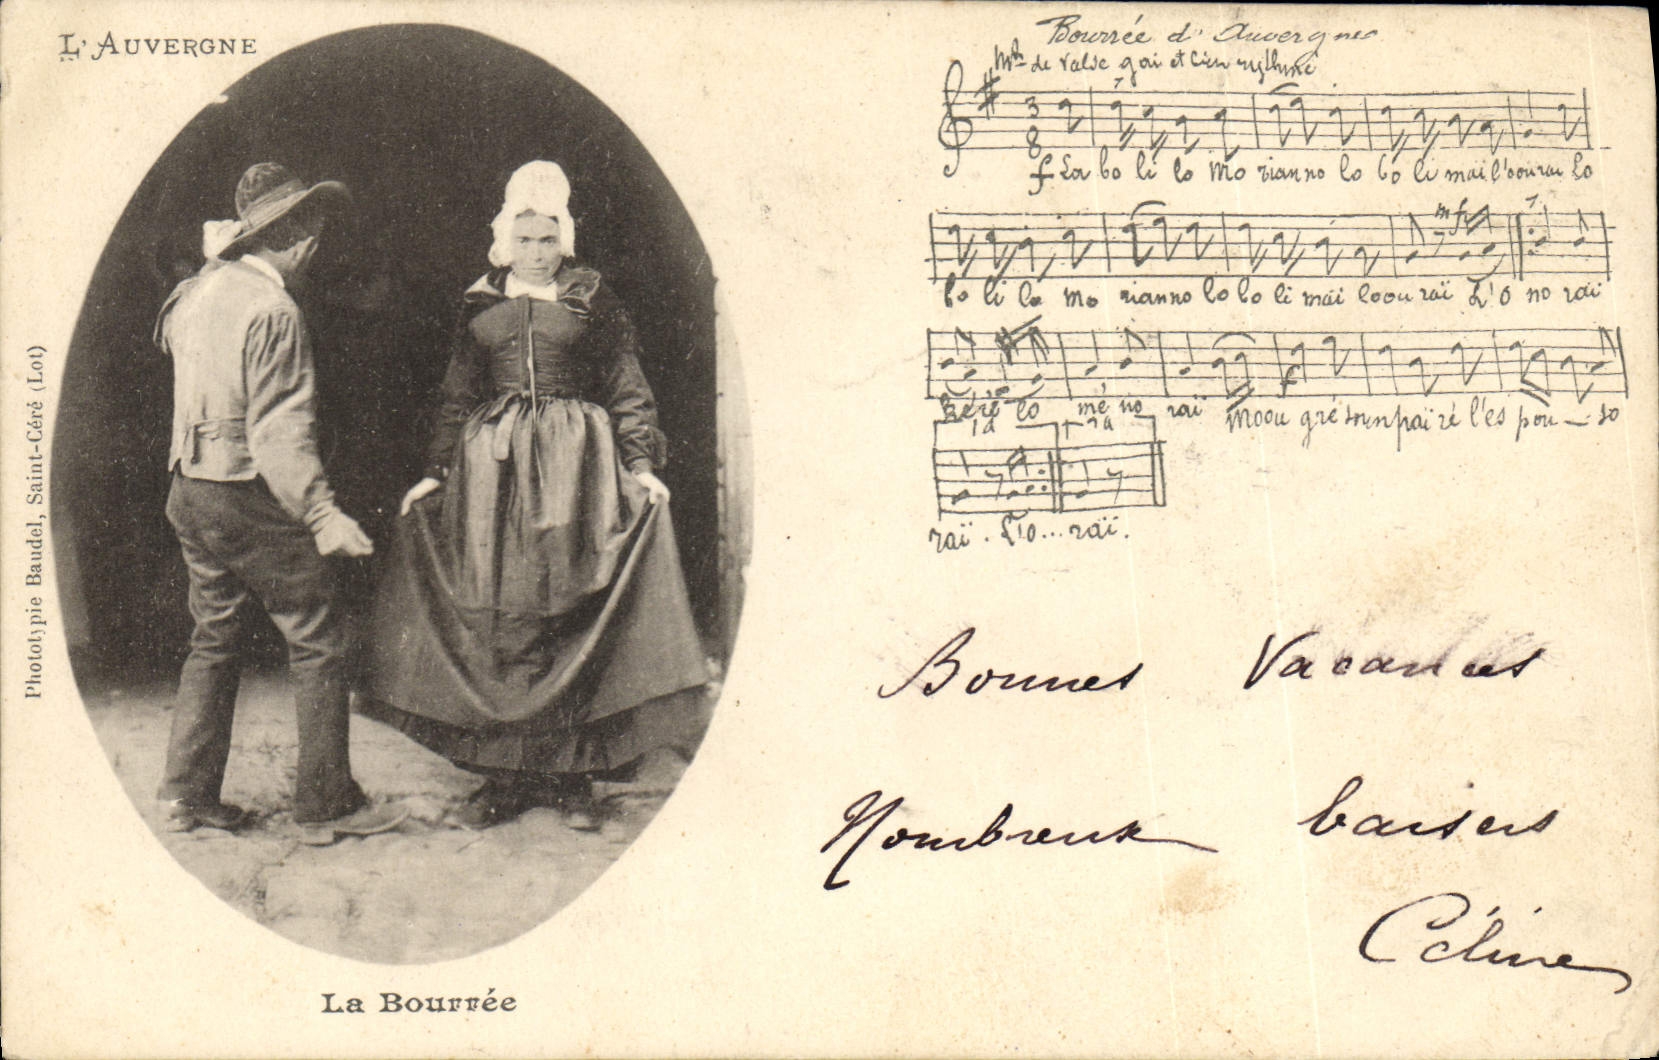 L'AUVERGNE
Bourrée d'Auvergne
Mt de Valse gai et bien rythmé
3
8
f La bo li lo Mo rianno lo bo li mai l'oourai lo
mf
bo li lo mo rianno lo bo li mai loou raï L'o no raï
f
ré lo mé no raï Moou gré moun païré l'es pou - so
1a 2a
raï. L'o... raï.
Bonnes Vacances
Nombreux baisers
Céline
Phototypie Baudel, Saint-Céré (Lot)
LA BOURRÉE